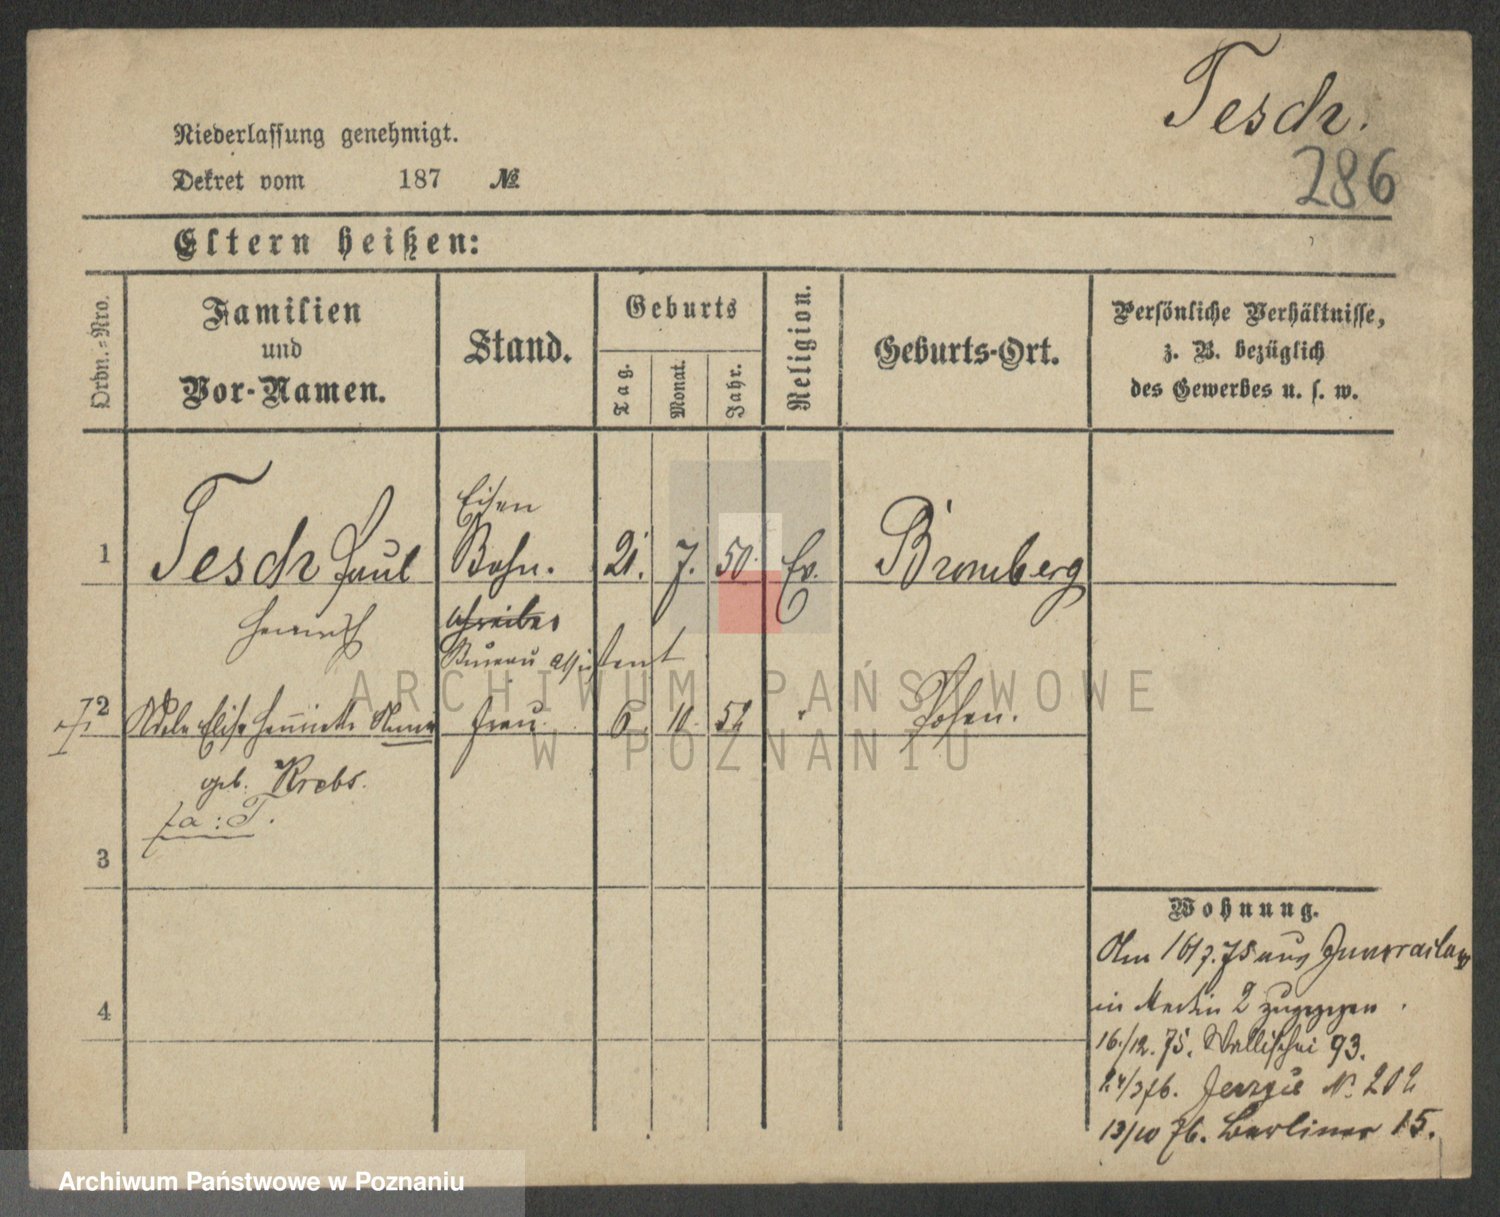 Tesch.
286
Niederlassung genehmigt.
Dekret vom 187 №
Eltern heißen:
Ordn.-Nro.
Familien
und
Vor-Namen.
Stand.
Geburts
Tag.
Monat.
Jahr.
Religion.
Geburts-Ort.
Persönliche Verhältnisse,
z. B. bezüglich
des Gewerbes u. s. w.
Eisen
1 Tesch Paul Bahn. 21. 7. 50. Ev. Bromberg
Heinrich schreiber
Bureau Assistent
2 Adele Elise Henriette Anna Frau. 6. 10. 52 Posen.
geb. Krebs.
fa: T.
3
4
Wohnung.
Am 16/7.75 aus Inowraclaw
in Martin 2 zugezogen.
16./12. 75. Wallischei 93.
24/3 76. Jerzyce N. 202
13/10 76. Berliner 15.
ARCHIWUM PAŃSTWOWE
W POZNANIU
Archiwum Państwowe w Poznaniu